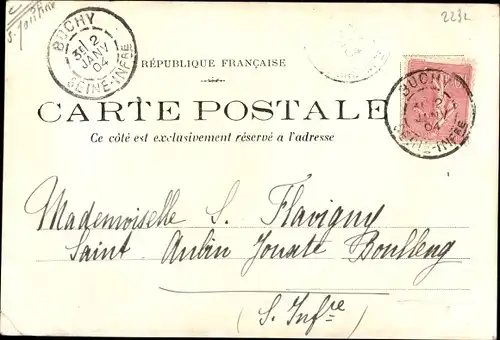 2232
BUCHY
3E 2
JANV
04
SEINE-INFRE
RÉPUBLIQUE FRANÇAISE
BUCHY
2
JANV
04
SEINE-INFRE
CARTE POSTALE
Ce côté est exclusivement réservé a l'adresse
Mademoiselle S. Flavigny
Saint Aubin Jouxte Boulleng
(S. Infre)